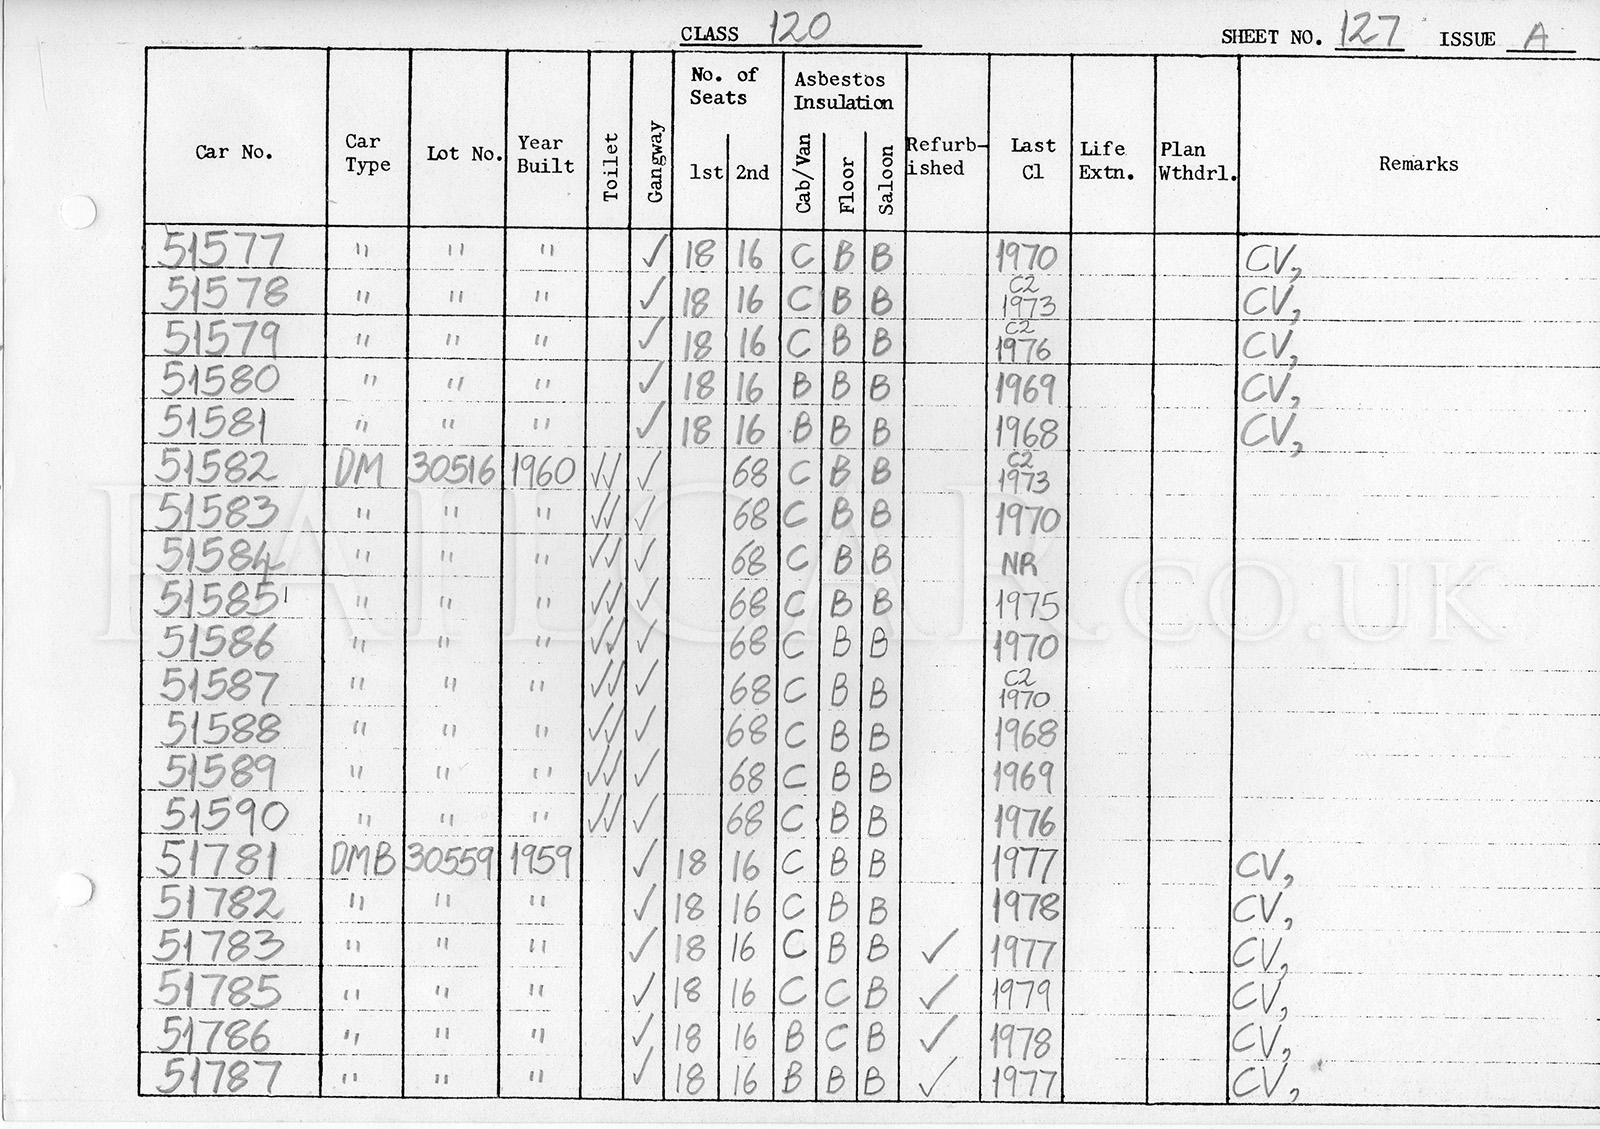 CLASS 120 SHEET NO. 127 ISSUE A
Car No. Car Type Lot No. Year Built Toilet Gangway No. of Seats 1st 2nd Asbestos Insulation Cab/Van Floor Saloon Refurb-ished Last Cl Life Extn. Plan Wthdrl. Remarks
51577 " " " ✓ 18 16 C B B 1970 CV,
51578 " " " ✓ 18 16 C B B C2 1973 CV,
51579 " " " ✓ 18 16 C B B C2 1976 CV,
51580 " " " ✓ 18 16 B B B 1969 CV,
51581 " " " ✓ 18 16 B B B 1968 CV,
51582 DM 30516 1960 ✓✓ ✓ 68 C B B C2 1973
51583 " " " ✓✓ ✓ 68 C B B 1970
51584 " " " ✓✓ ✓ 68 C B B NR
51585 " " " ✓✓ ✓ 68 C B B 1975
51586 " " " ✓✓ ✓ 68 C B B 1970
51587 " " " ✓✓ ✓ 68 C B B C2 1970
51588 " " " ✓✓ ✓ 68 C B B 1968
51589 " " " ✓✓ ✓ 68 C B B 1969
51590 " " " ✓✓ ✓ 68 C B B 1976
51781 DMB 30559 1959 ✓ 18 16 C B B 1977 CV,
51782 " " " ✓ 18 16 C B B 1978 CV,
51783 " " " ✓ 18 16 C B B ✓ 1977 CV,
51785 " " " ✓ 18 16 C C B ✓ 1979 CV,
51786 " " " ✓ 18 16 B C B ✓ 1978 CV,
51787 " " " ✓ 18 16 B B B ✓ 1977 CV,
RAILCAR.CO.UK